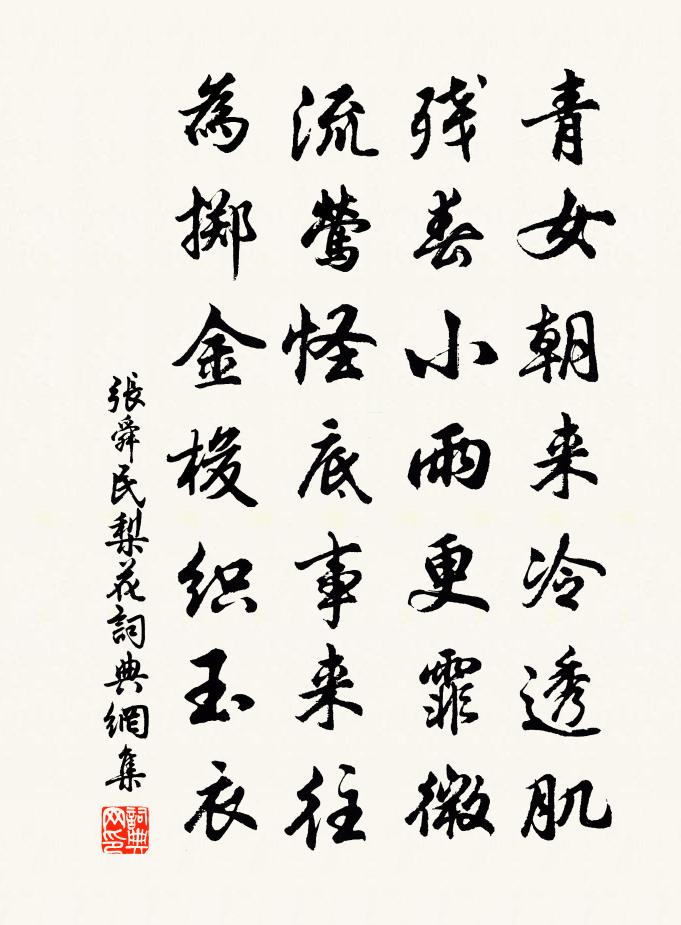 青女朝来冷透肌
残春小雨更霏微
流莺怪底事来往
為掷金梭织玉衣
張舜民梨花詞典網集
詞典網印